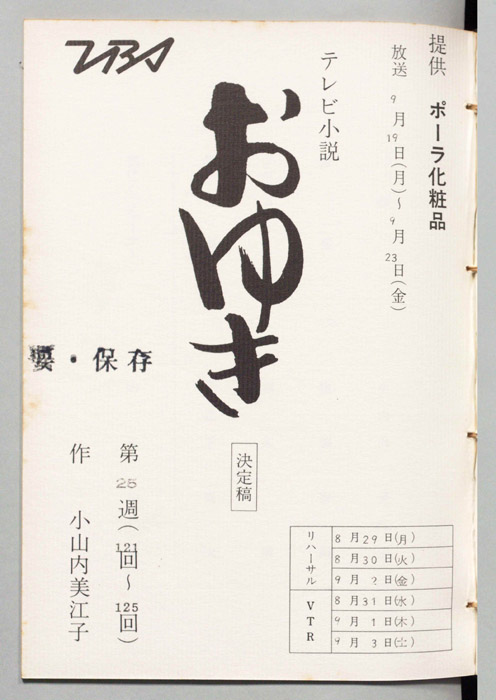 提供 ポーラ化粧品
放送 9月19日(月)～9月23日(金)
テレビ小説
TBS
おゆき
決定稿
要・保存
第25週(121回～125回)
作 小山内美江子
リハーサル
8月29日(月)
8月30日(火)
9月2日(金)
VTR
8月31日(水)
9月1日(木)
9月3日(土)